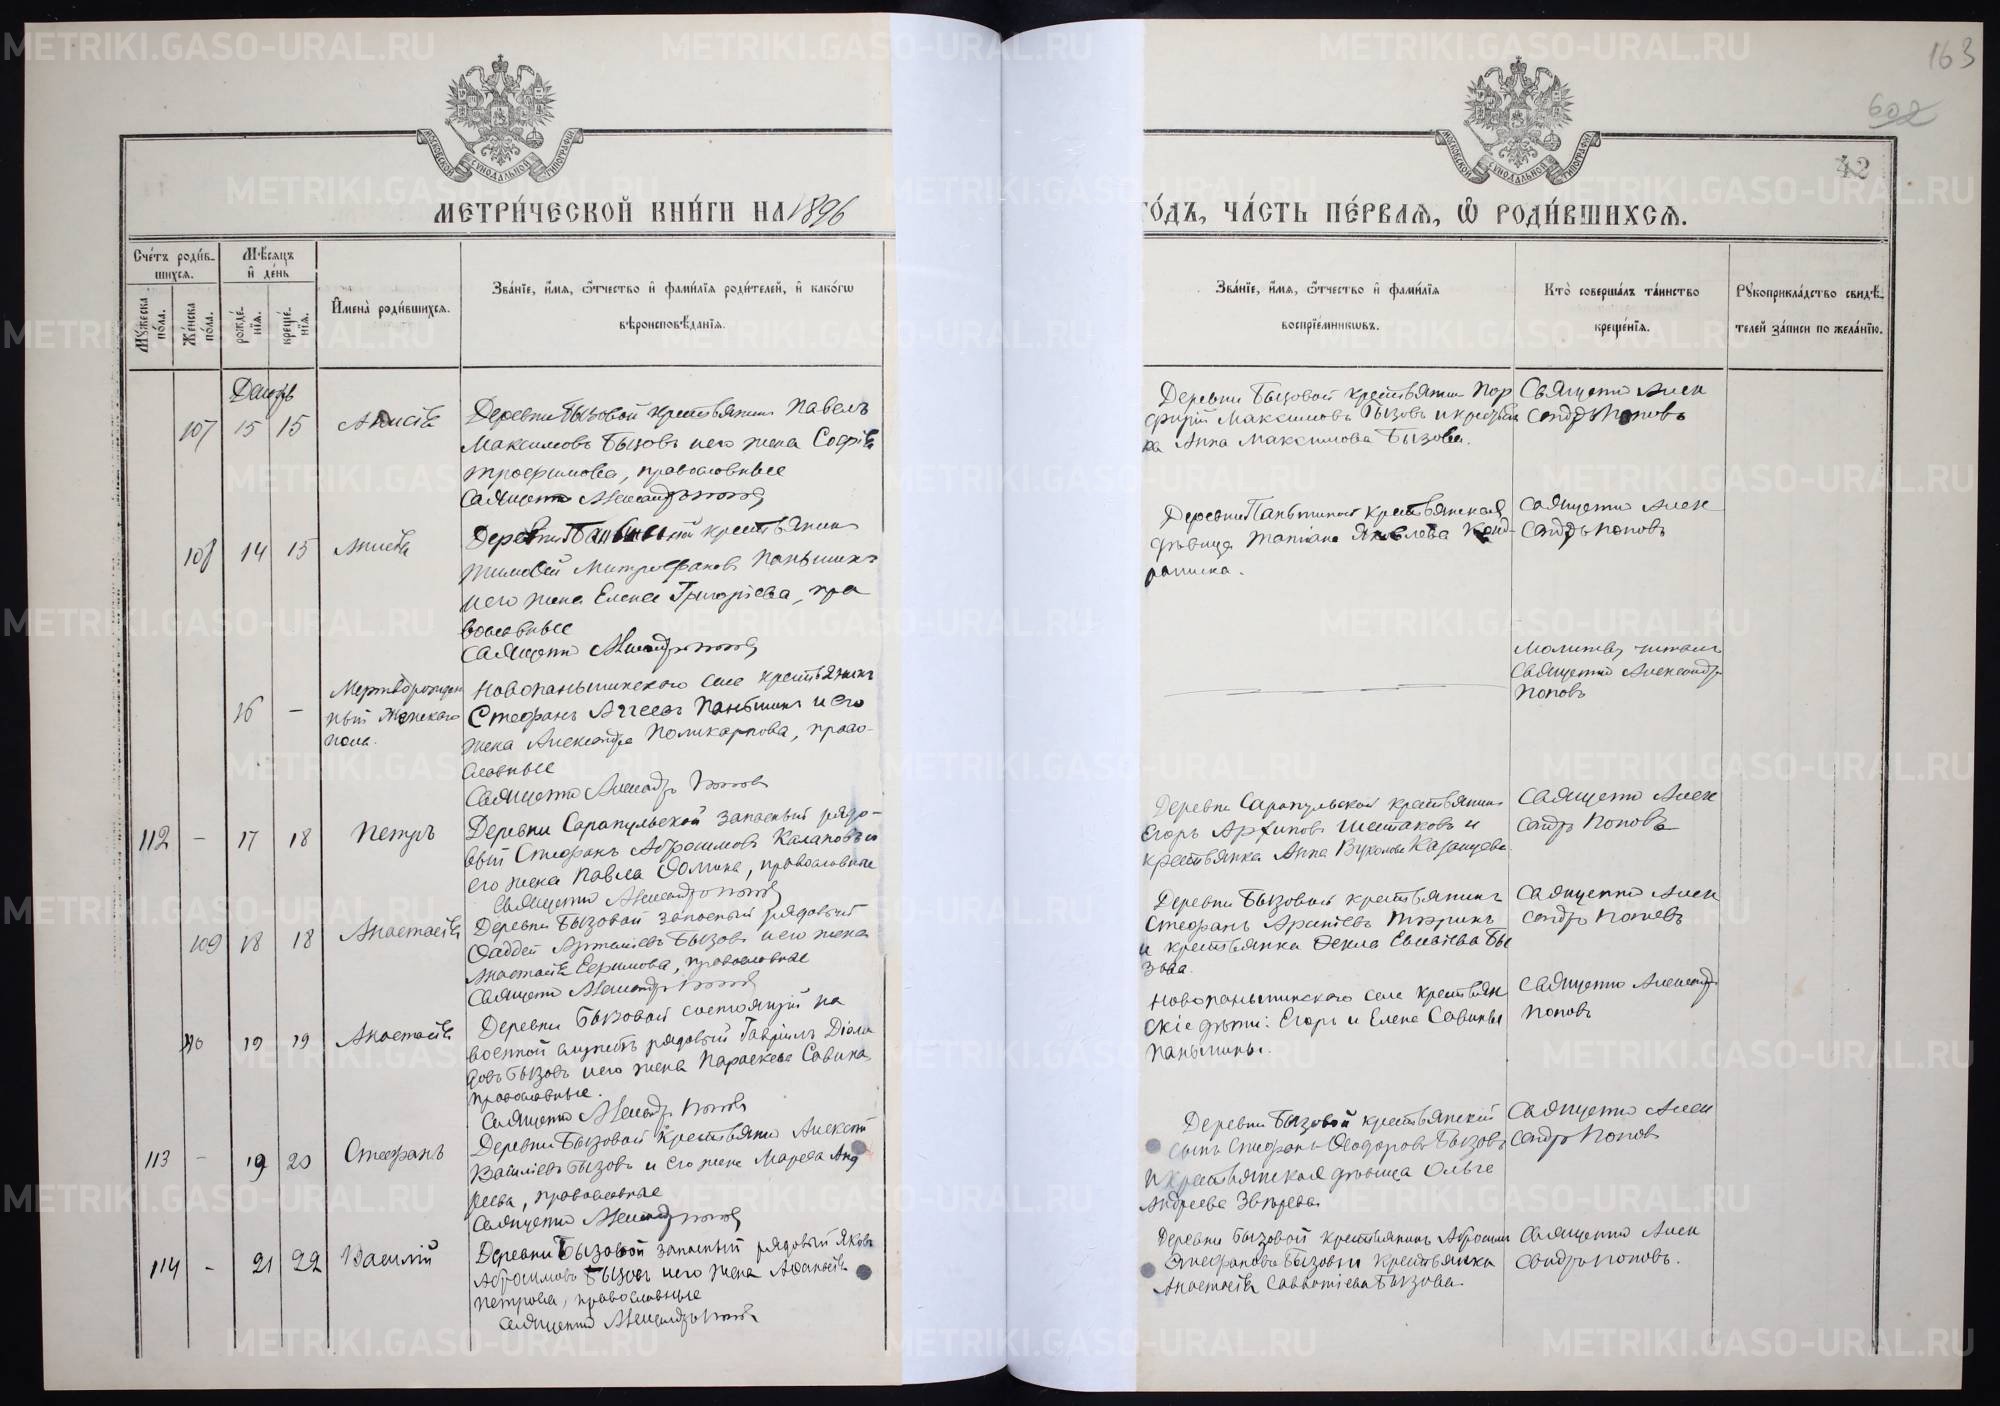 163
602
42
МОСКОВСКОЙ СѴНОДАЛЬНОЙ ТИПОГРАФІИ
МОСКОВСКОЙ СѴНОДАЛЬНОЙ ТИПОГРАФІИ
МЕТРИ́ЧЕСКОЙ КНИ́ГИ НА 1896
ГО́ДЪ, ЧА́СТЬ ПЕ́РВАѦ, Ѽ РОДИ́ВШИХСѦ.
Сче́тъ роди́в-
шихсѧ.
Мꙋ́жеска по́ла.
Же́нска по́ла.
Мѣ́сѧцъ
и҆ де́нь
рожде́-
нїѧ.
креще́-
нїѧ.
И҆мена̀ роди́вшихсѧ.
Зва́нїе, и҆́мѧ, ѻ҆́тчество и҆ фами́лїѧ роди́телей, и҆ како́гѡ
вѣроисповѣ́данїѧ.
Зва́нїе, и҆́мѧ, ѻ҆́тчество и҆ фами́лїѧ
воспрїе́мникѡвъ.
Кто̀ соверша́лъ та́инство
креще́нїѧ.
Рꙋкоприкла́дство свидѣ́-
телей за́писи по жела́нїю.
107 15 15
Деревни Бызовой крестьянинъ Павелъ
Максимовъ Бызовъ и его жена Софія
Трофимова, православные
Священникъ Александръ Поповъ
Деревни Бызовой крестьянинъ Пор
фирій Максимовъ Бызовъ и крестьян
ка Анна Максимова Бызова.
Священникъ Алек
сандръ Поповъ
108 14 15
Деревни крестьянинъ
Тимофей Митрофановъ Паньшинъ
и его жена Елена Григоріева, пра
вославные
Священникъ Александръ Поповъ
Деревни Паньшиной крестьянская
дѣвица Татіана Яковлева
Священникъ Алек
сандръ Поповъ
16 — Мертворожден
ный женскаго
пола.
Новопаньшинскаго села крестьянинъ
Стефанъ Аггеевъ Паньшинъ и его
жена Александра Поликарпова, право-
славные
Священникъ Александръ Поповъ
Молитву читалъ
Священникъ Александръ
Поповъ
112 — 17 18 Петръ
Деревни Сарапульской запасный рядо-
вый Стефанъ Абросимовъ и
его жена Павла Ѳомина, православные
Священникъ Александръ Поповъ
Деревни Сарапульской крестьянинъ
Егоръ Архиповъ Шестаковъ и
крестьянка Анна Вуколова Казанцева.
Священникъ Алек
сандръ Поповъ
109 18 18 Анастасія
Деревни Бызовой запасный рядовый
Ѳаддей Бызовъ и его жена
Анастасія Ефимова, православные
Священникъ Александръ Поповъ
Деревни Бызовой крестьянинъ
Стефанъ
и крестьянка Ѳекла Бы
зова.
Священникъ Алек
сандръ Поповъ
110 19 19 Анастасія
Деревни Бызовой состоящій на
военной службѣ рядовый Гавріилъ
Бызовъ и его жена Параскева Савина
православные.
Священникъ Александръ Поповъ
Новопаньшинскаго села крестьян
скіе дѣти: Егоръ и Елена Савины
Паньшины.
Священникъ Александръ
Поповъ
113 — 19 20 Стефанъ
Деревни Бызовой крестьянинъ Алексѣй
Василіевъ Бызовъ и его жена Марѳа Анд
реева, православные
Священникъ Александръ Поповъ
Деревни Бызовой крестьянскій
сынъ Стефанъ Ѳеодоровъ Бызовъ
и крестьянская дѣвица Ольга
Андреева Звѣрева
Священникъ Алек
сандръ Поповъ
114 — 21 22 Василій
Деревни Бызовой запасный рядовый Яковъ
Абросимовъ Бызовъ и его жена Аѳанасія
Петрова, православные
Священникъ Александръ Поповъ
Деревни Бызовой крестьянинъ Абросимъ
Стефановъ Бызовъ и крестьянка
Анастасія Савватіева Бызова.
Священникъ Алек
сандръ Поповъ.
METRIKI.GASO-URAL.RU